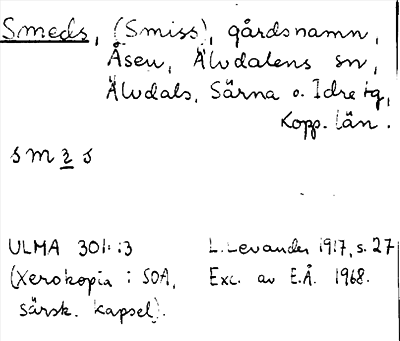 Smeds, (Smiss), gårdsnamn,
Åsen, Älvdalens sn,
Älvdals, Särna o. Idre tg,
Kopp. län.
s m z s
ULMA 301:13 L. Levander 1917, s. 27
(Xerokopia i SOA, Exc. av E.Å. 1968.
särsk. kapsel).